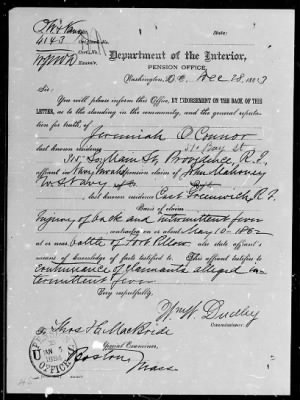 State:
4143
Department of the Interior,
PENSION OFFICE,
Washington, D.C. Dec 28, 1883
Sir:
You will please inform this Office, BY ENDORSEMENT ON THE BACK OF THIS
LETTER, as to the standing in the community, and the general reputa-
tion for truth, of
Jeremiah O'Connor
last known residence 51 Bay St
305 So. Main St, Providence, R.I.
affiant in pension claim of John Mahoney
U.S. Navy
last known residence East Greenwich, R.I.
Basis of claim:
Injury of back and intermittent fever
on or about May 10-1862
at or near battle of Fort Pillow. Also state affiant's
means of knowledge of facts testified to. This affiant testifies to
continuance of claimants alleged in-
termittent fever
Very respectfully,
Wm W. Dudley
Commissioner.
To Thos H. MacBride
Special Examiner,
Boston,
Mass